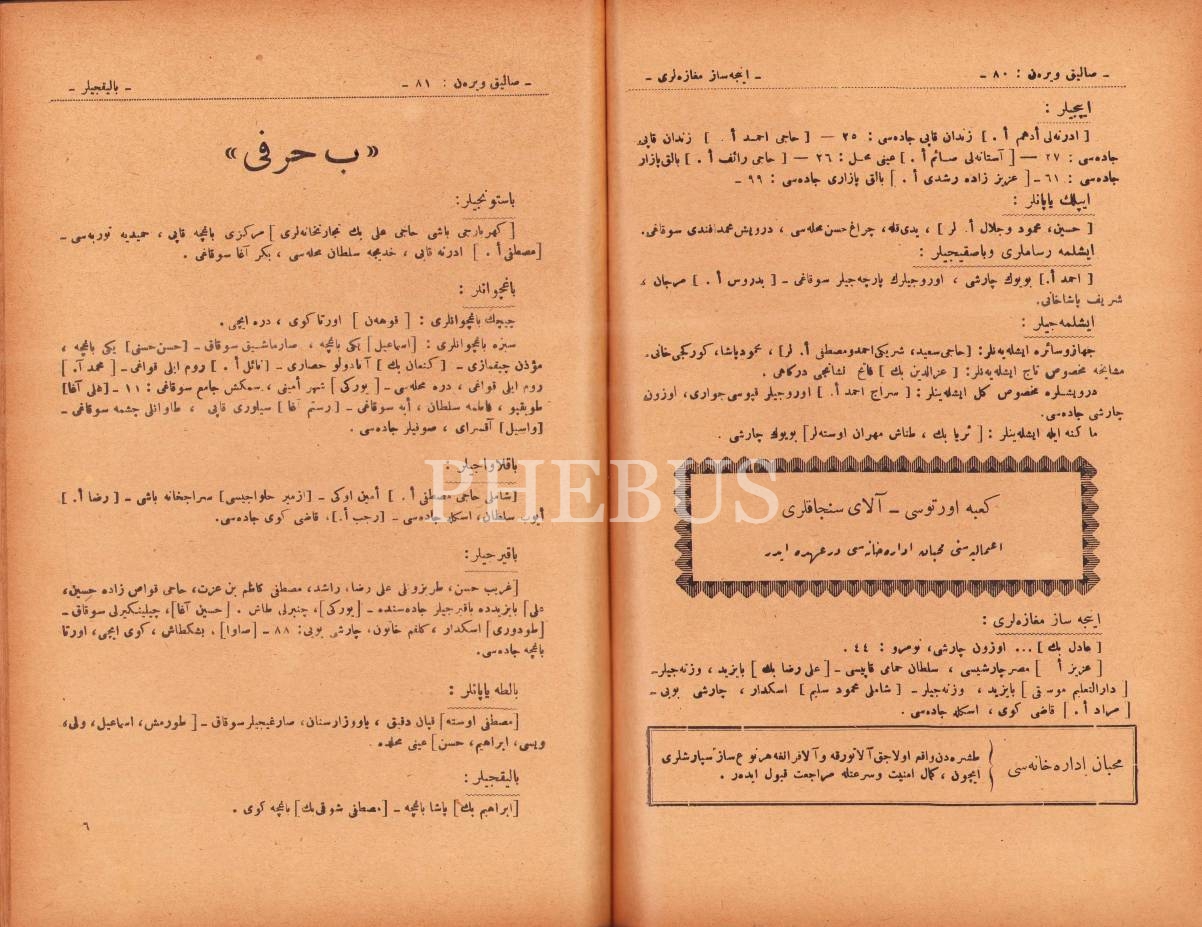 ـ صاليق ويرەن : ٨٠ ـ
ـ اينجه ساز مغازه‌لری ـ
ايپجيلر :
[ ادرنه‌لی أدهم أ . ] زندان قاپی جاده‌سی : ٢٥ — [ حاجی احمد أ . ] زندان قاپی
جاده‌سی : ٢٧ — [ آستانه‌لی صائم أ . ] عينی محل : ٢٦ — [ حاجی رائف أ . ] بالق پازار
جاده‌سی : ٦١ ـ [ عزيز زاده رشدی أ . ] بالق پازاری جاده‌سی : ٩٩ ـ
ايپلك ياپانلر :
[ حسين، محمود وجلال أ. لر ] ، يدی قله، چراغ حسن محله‌سی ، درويش محمد افندی سوقاغی.
ايشلمه رساملری وباصقيجيلر :
[ احمد أ. ] بويوك چارشی ، اوروجيلرك پارچه‌جيلر سوقاغی ـ [ بدروس أ . ] مرجان ،
شريف پاشاخانی.
ايشلمه‌جيلر :
جهاز وسائره ايشله‌يه‌نلر: [حاجی سعيد، شريكی احمد ومصطفی أ. لر] ، محمود پاشا، كوركجی خانی.
مشايخه مخصوص تاج ايشله‌يه‌نلر: [ عزالدين بك ] فاتح نشانجی دركاهی .
درويشلره مخصوص كل ايشله‌ينلر : [ سراج احمد أ. ] اوروجيلر قپوسی جواری، اوزون
چارشی جاده‌سی.
ما كنه ايله ايشله‌ينلر : [ ثريا بك ، طناش مهران اوسته‌لر] بويوك چارشی .
كعبه اورتوسی ـ آلای سنجاقلری
اعماليه‌سنی محبان اداره خانه‌سی درعهده ايدر
اينجه ساز مغازه‌لری :
[ عادل بك ] ... اوزون چارشی، نومرو : ٤٤ .
[ عزيز أ ] مصر چارشيسی ، سلطان حمامی قاپيسی ـ [ علی رضا بك ] بايزيد ، وزنه‌جيلر ـ
[ دارالتعليم موسيقی ] بايزيد ، وزنه‌جيلر ـ [ شاملی محمود سليم ] اسكدار ، چارشی بويی ـ
[ مراد أ. ] قاضی كوی ، اسكله جاده‌سی .
محبان اداره خانه‌سی
طشره‌دن واقع اولاجق آلاتورقه و آلافرانغه هر نوع ساز سپارشلری
ايچون ، كمال امنيت وسرعتله مراجعت قبول ايده‌ر .
ـ صاليق ويرەن : ٨١ ـ
ـ باليقجيلر ـ
« ب حرفی »
باستونجيلر:
[ كهربارجی باشی حاجی علی بك تجارتخانه‌لری ] مركزی باغچه قاپی ، حميديه توربه‌سی ـ
[مصطفی أ . ] ادرنه قاپی ، خديجه سلطان محله‌سی ، بكر آغا سوقاغی .
باغچوانلر :
چيچك باغچوانلری : [ قوهه‌ن ] اورتا كوی ، دره ايچی .
سبزه باغچوانلری : [اسماعيل] يكی باغچه ، صارماشيق سوقاق ـ [حسن حسنی] يكی باغچه ،
مؤذن چيقمازی ـ [ كنعان بك ] آنادولو حصاری ـ [ نائل أ . ] روم ايلی قواغی ـ [ محمد آ. ]
روم ايلی قواغی ، دره محله‌سی ـ [ يوركی ] شهر أمينی ، سمكش جامع سوقاغی : ١١ ـ [علی آغا]
طوپقپو ، فاطمه سلطان ، أبه سوقاغی ـ [ رستم آغا ] سيلوری قاپی ، طاوانلی چشمه سوقاغی ـ
[واسيل] آقسرای ، صوفيلر جاده‌سی .
باقلاواجيلر :
[شاملی حاجی مصطفی أ . ] أمين اوكی ـ [ازمير حلواجيسی] سراجخانه باشی ـ [ رضا أ. ]
أيوب سلطان، اسكله جاده‌سی ـ [رجب أ.]، قاضی كوی جاده‌سی.
باقيرجيلر:
[غريب حسن، طربزونلی علی رضا، راشد، مصطفی كاظم بن عزت، حاجی قواص زاده حسين،
علی] بايزيدده باقيرجيلر جاده‌سنده ـ [يوركی]، چنبرلی طاش . [حسين آغا]، چيلينكيرلی سوقاق ـ
[طودوری] اسكدار ، كلفم خاتون، چارشی بويی: ٨٨ ـ [صاوا]، بشكطاش ، كوی ايچی، اورتا
باغچه جاده‌سی.
بالطه ياپانلر :
[مصطفی اوسته] قپان دقيق ، ياووزارسنان، صارغيجيلر سوقاق ـ [ طورمش، اسماعيل، ولی،
ويسی، ابراهيم، حسن] عينی محلده .
باليقجيلر:
[ابراهيم بك] پاشا باغچه ـ [مصطفی شوقی بك] باغچه كوی .
٦
PHEBUS